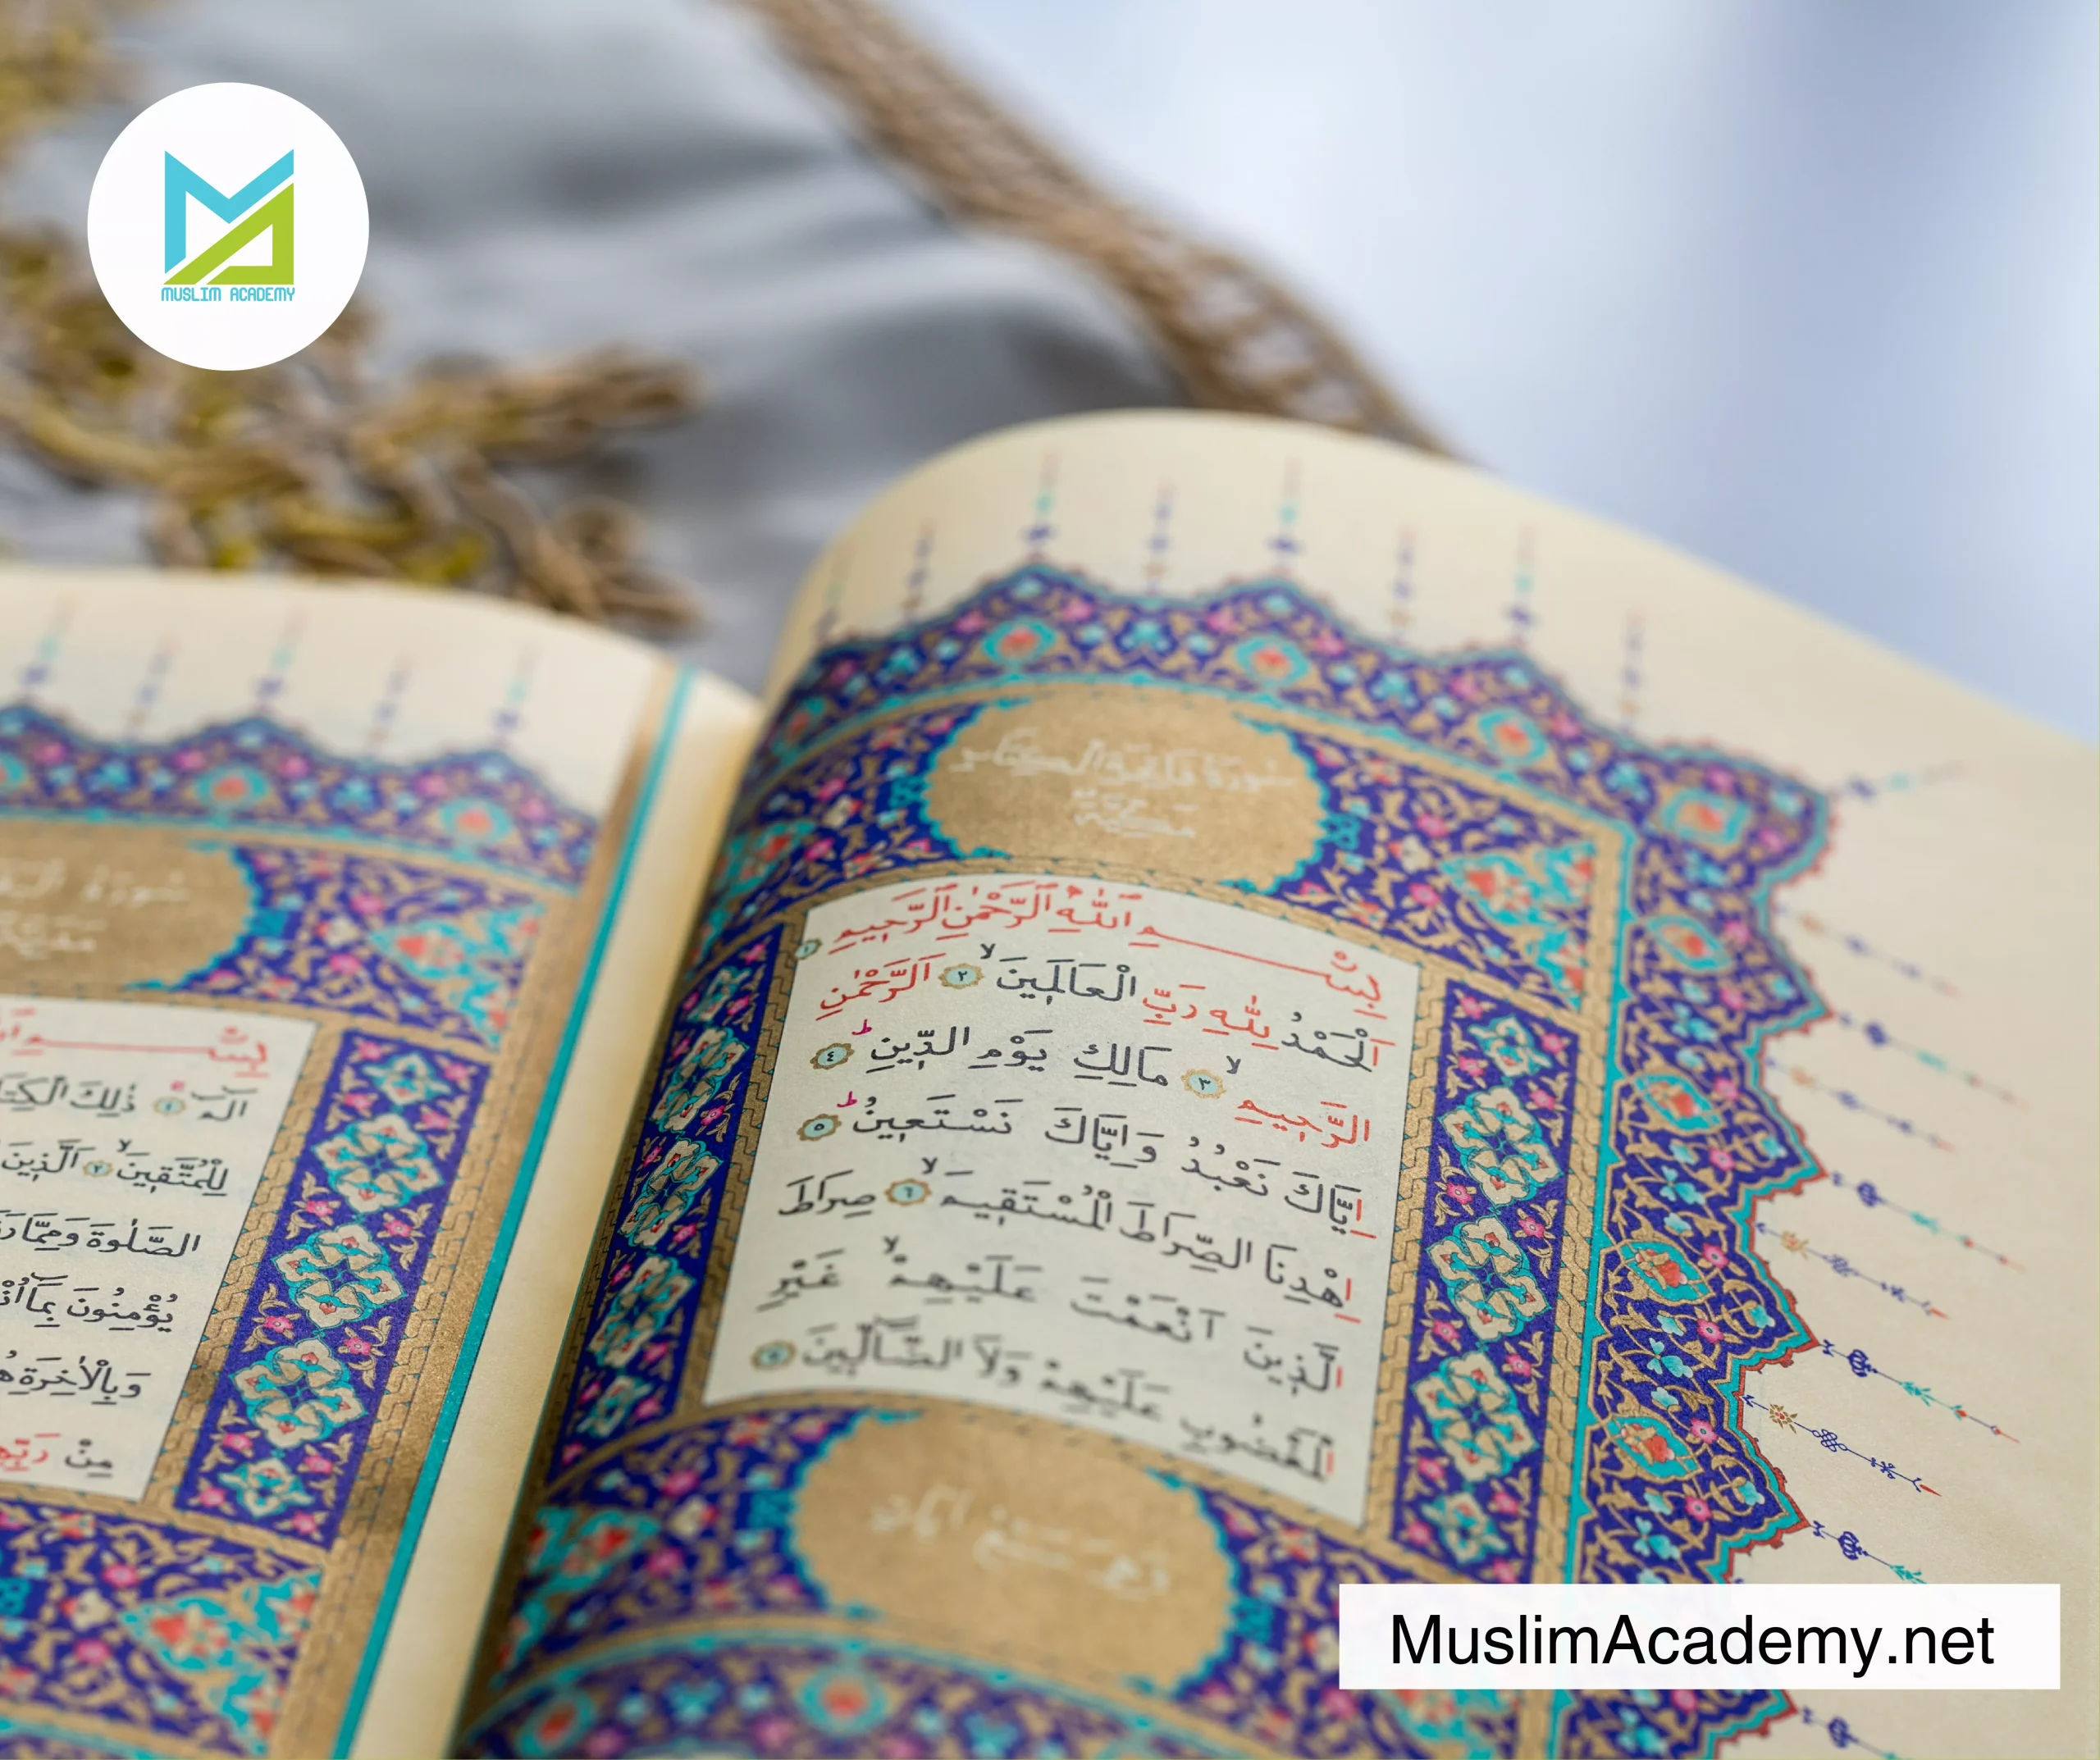 MUSLIM ACADEMY
سُورَةُ فَاتِحَةِ الْكِتَابِ
مَكِّيَّةٌ
بِسْــــمِ ٱللّٰهِ ٱلرَّحْمٰنِ ٱلرَّحِيمِ ١
اَلْحَمْدُ لِلّٰهِ رَبِّ الْعَالَمِينَ ۙ ٢ اَلرَّحْمٰنِ
الرَّحِيمِ ۙ ٣ مَالِكِ يَوْمِ الدِّينِ ۜ ٤
اِيَّاكَ نَعْبُدُ وَاِيَّاكَ نَسْتَعِينُ ۜ ٥
اِهْدِنَا الصِّرَاطَ الْمُسْتَقِيمَ ۙ ٦ صِرَاطَ
الَّذِينَ اَنْعَمْتَ عَلَيْهِمْ ۙ غَيْرِ
الْمَغْضُوبِ عَلَيْهِمْ وَلَا الضَّٓالِّينَ ٧
وَهِيَ سَبْعُ اٰيَاتٍ
سُورَةُ
بِسْــــمِ
الٓمٓ ۚ ١ ذٰلِكَ
لِلْمُتَّقِينَ ۙ ٢ اَلَّذِينَ
الصَّلٰوةَ وَمِمَّا
يُؤْمِنُونَ بِمَٓا
وَبِالْاٰخِرَةِ
مِنْ
MuslimAcademy.net